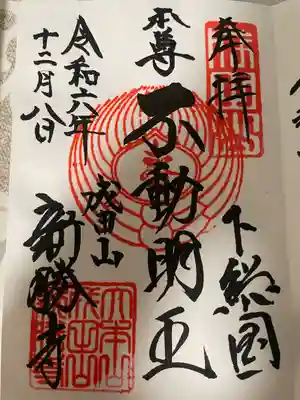 奉拝
下総国
本尊
不動明王
成田山
新勝寺
令和六年
十二月八日